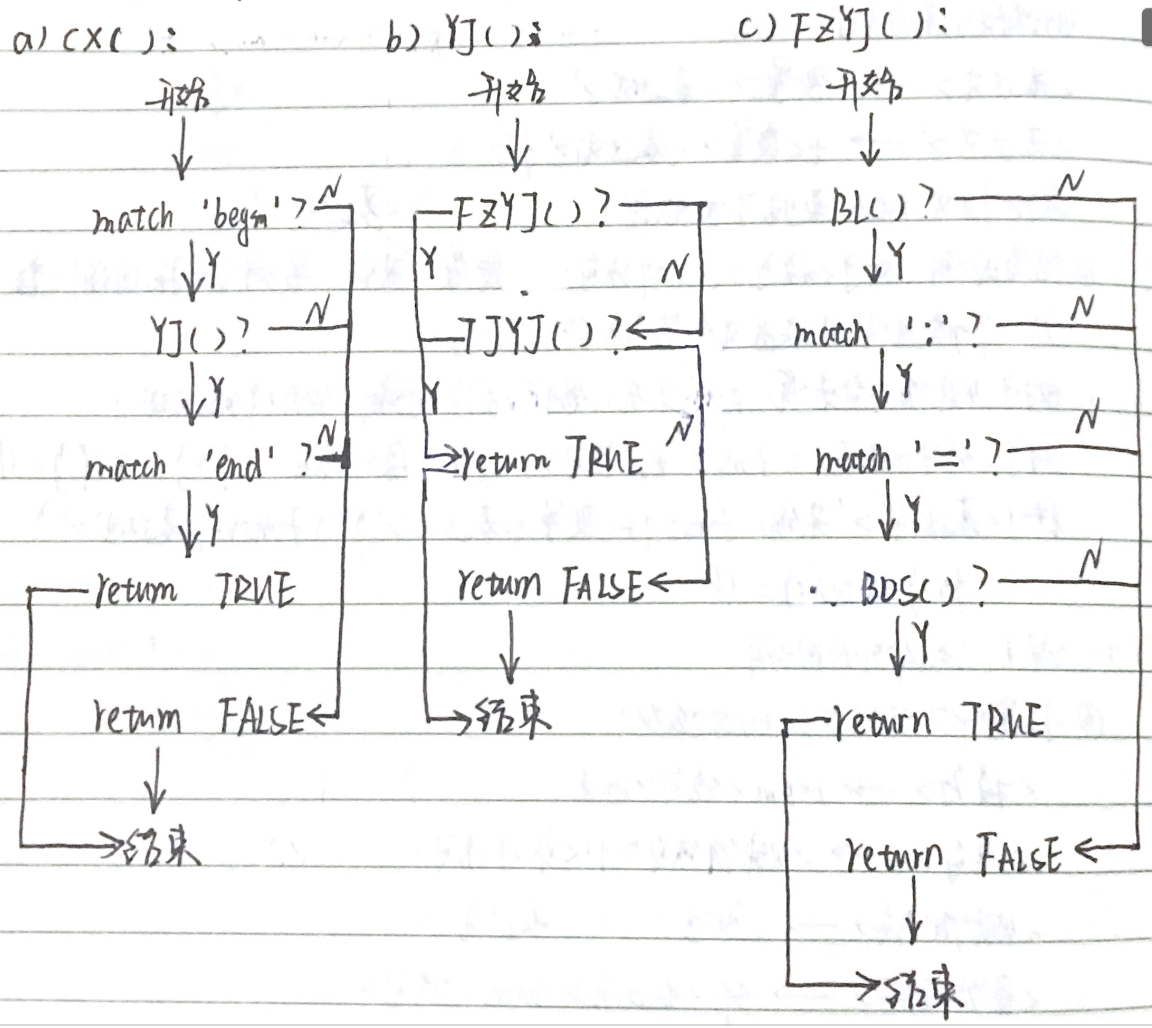 a) CX( ):
开始
match 'begin'?
N
Y
YJ( )?
N
Y
match 'end' ?
N
Y
return TRUE
return FALSE
结束
b) YJ( ):
开始
FZYJ( )?
Y
N
TJYJ( )?
Y
N
return TRUE
return FALSE
结束
c) FZYJ( ):
开始
BL( )?
N
Y
match ':' ?
N
Y
match '=' ?
N
Y
BDS( )?
N
Y
return TRUE
return FALSE
结束